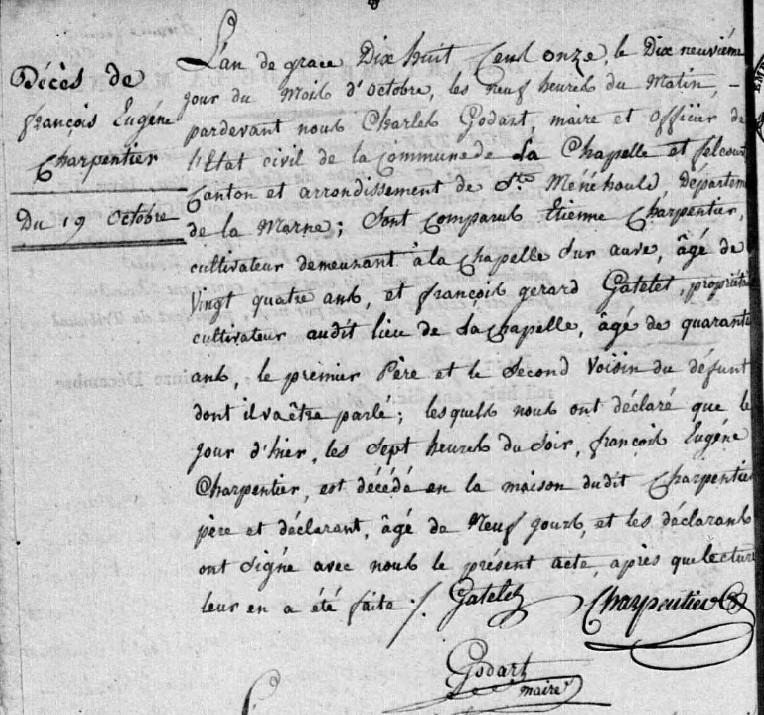 Décès de
françois Eugéne
Charpentier
Du 19 octobre
L'an de grace Dix huit Cent onze, le Dix neuviéme
jour du Mois d'octobre, les neuf heures du Matin, -
pardevant nous Charles Godart, maire et officier de
l'Etat civil de la Commune de La Chapelle et felcourt
Canton et arrondissement de Ste Ménéhould, Départem
de la Marne; Sont Comparus Etienne Charpentier,
cultivateur demeurant à la chapelle sur auve, âgé de
Vingt quatre ans, et françois gerard Gatelet, propriéta
cultivateur audit lieu de La chapelle, âgé de quarante
ans, le premier Père et le Second Voisin du défunt
dont il va être parlé; lesquels nous ont déclaré que le
jour d'hier, les Sept heures du Soir, françois Eugéne
Charpentier, est décédé en la maison dudit Charpentier
père et déclarant, âgé de Neuf jours, et les déclarans
ont Signé avec nous le présent acte, après que lecture
leur en a été faite ./. Gatelet Charpentier
Godart
maire